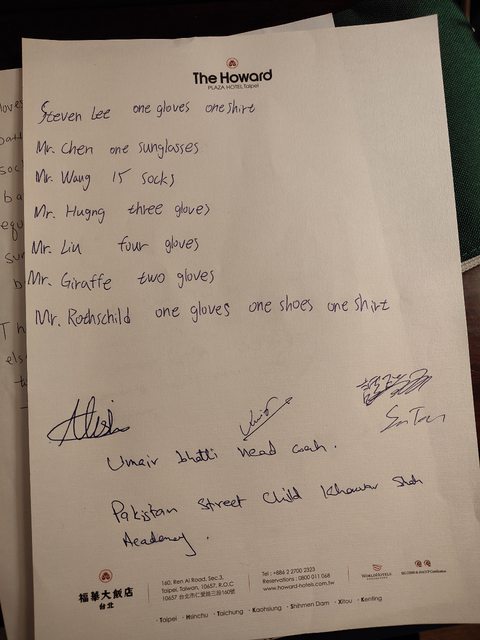 The Howard
PLAZA HOTEL Taipei
Steven Lee one gloves one shirt
Mr. Chen one sunglasses
Mr. Wang 15 socks
Mr. Hugng three gloves
Mr. Liu four gloves
Mr. Giraffe two gloves
Mr. Rothschild one gloves one shoes one shirt
Umair bhatti head coah.
Pakistan Street Child Khawar Shah
Academy.
福華大飯店
台北
160, Ren Ai Road, Sec.3,
Taipei, Taiwan, 10657, R.O.C
10657 台北市仁愛路三段160號
Tel : +886 2 2700 2323
Reservations : 0800 011 068
www.howard-hotels.com.tw
WORLDHOTELS
· Taipei · Hsinchu · Taichung · Kaohsiung · Shihmen Dam · Xitou · Kenting